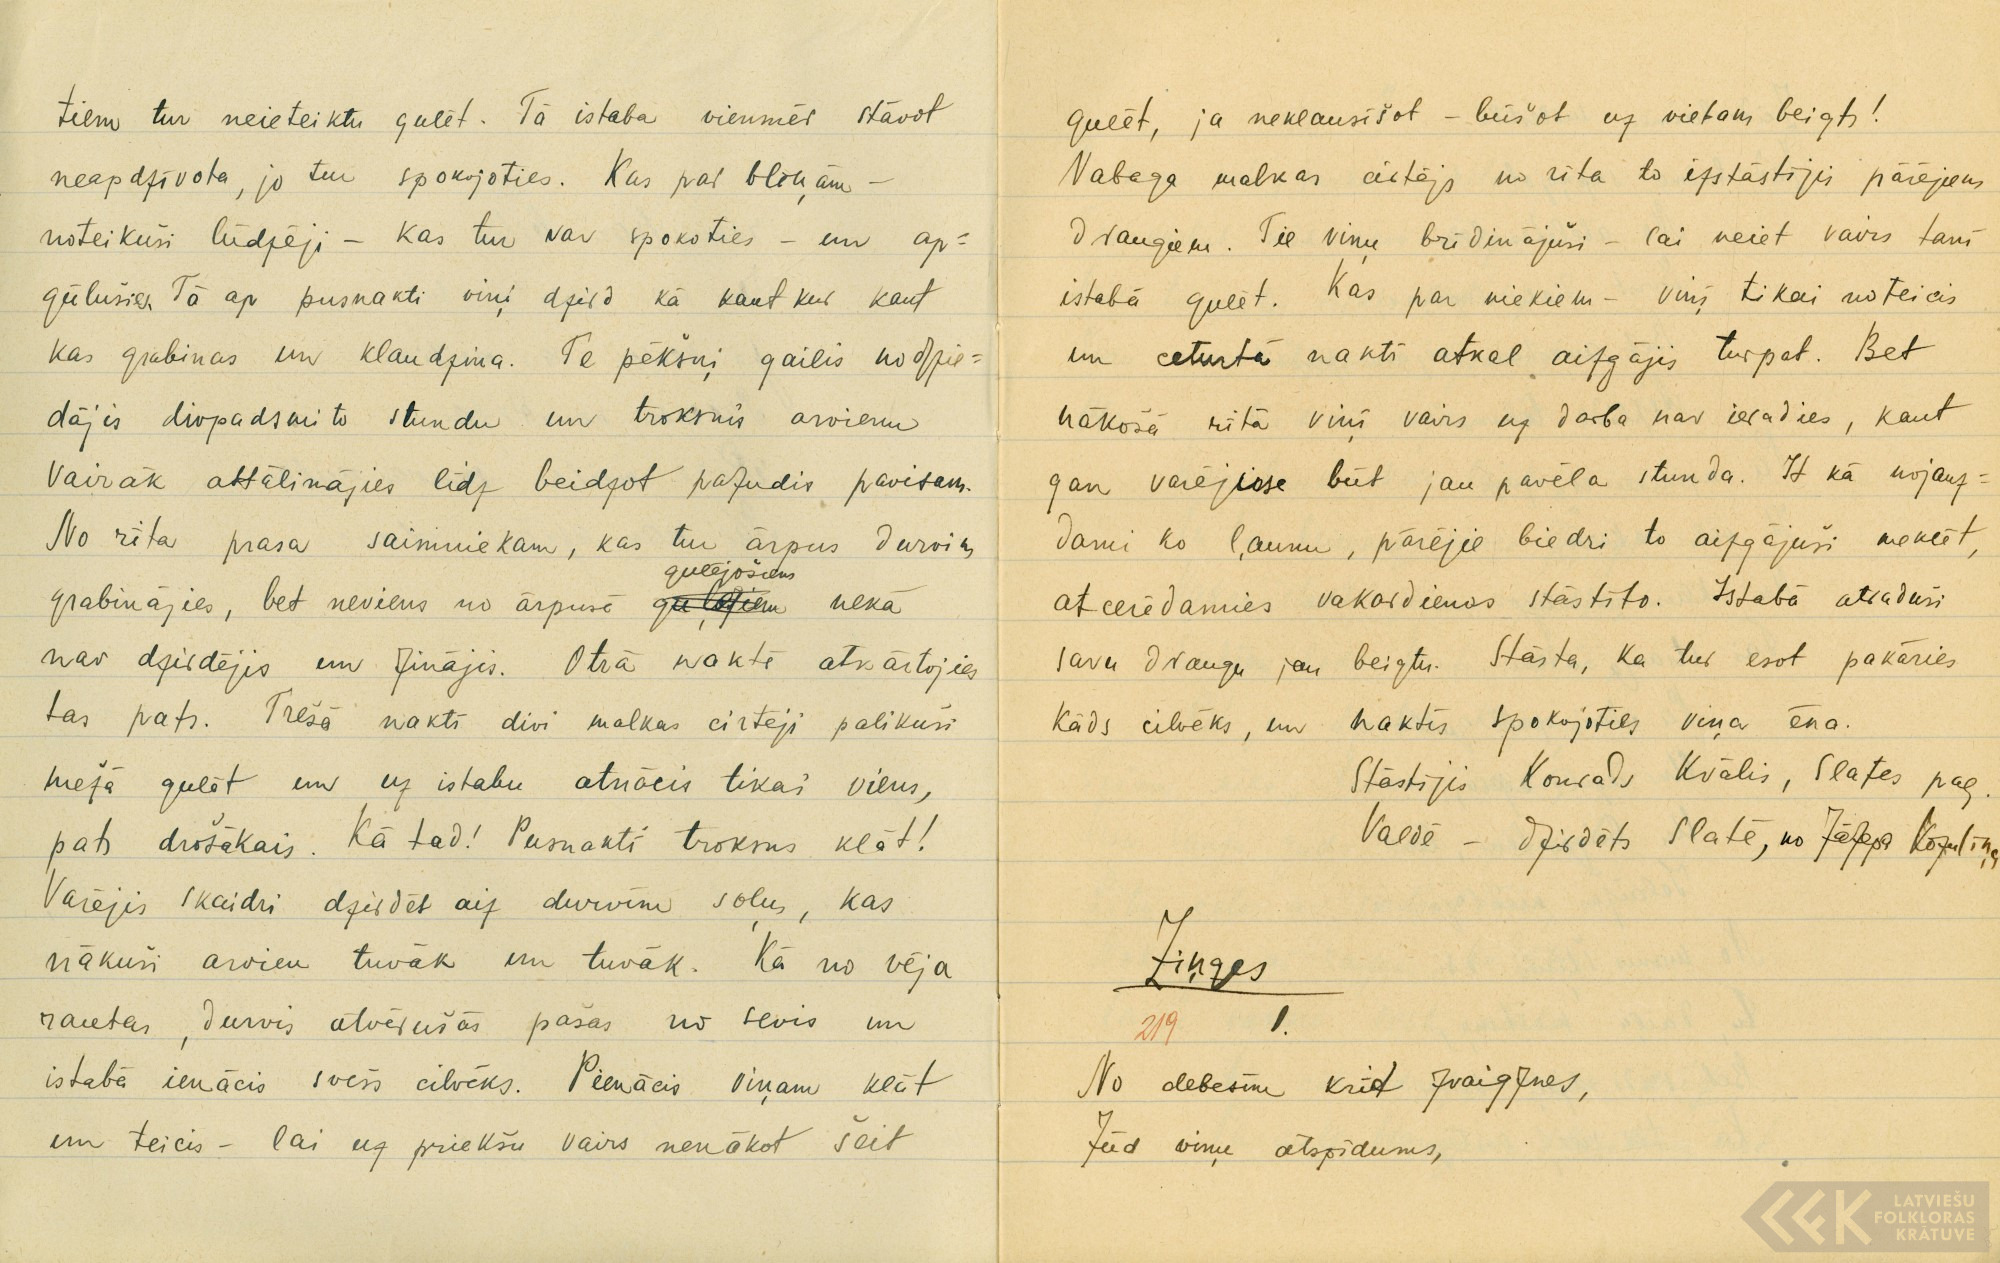 tiem tur neieteiktu gulēt. Tā istaba vienmēr stāvot
neapdzīvota, jo tur spokojoties. Kas par blēņām –
noteikuši lūdzēji – kas tur var spokoties – un ap=
gūlušies. Tā ap pusnakti viņi dzird kā kaut kur kaut
kas grabinas un klaudzina. Te pēkšņi gailis nodzie=
dājis divpadsmito stundu un troksnis arvienu
vairāk attālinājies līdz beidzot pazudis pavisam.
No rīta prasa saimniekam, kas tur ārpus durvīm
grabinājies, bet neviens no ārpusē gulējošiem nekā
nav dzirdējis un zinājis. Otrā naktē atkārtojies
tas pats. Trešā naktī divi malkas cirtēji palikuši
mežā gulēt un uz istabu atnācis tikai viens,
pats drošākais. Kā tad! Pusnaktī troksns klāt!
Varējis skaidri dzirdēt aiz durvīm soļus, kas
nākuši arvien tuvāk un tuvāk. Kā no vēja
rautas, durvis atvērušās pašas no sevis un
istabā ienācis svešs cilvēks. Pienācis viņam klāt
un teicis – lai uz priekšu vairs nenākot šeit
gulēt, ja neklausīšot – būšot uz vietas beigts!
Nabaga malkas cirtējs no rīta to izstāstījis pārējiem
draugiem. Tie viņu brīdinājuši – lai neiet vairs tanī
istabā gulēt. Kas par niekiem – viņš tikai noteicis
un ceturtā naktī atkal aizgājis turpat. Bet
nākošā rītā viņš vairs uz darba nav ieradies, kaut
gan varējuse būt jau pavēla stunda. It kā nojauz=
dami ko ļaunu, pārējie biedri to aizgājuši meklēt,
atcerēdamies vakardienas stāstīto. Istabā atraduši
savu draugu jau beigtu. Stāsta, ka tur esot pakāries
kāds cilvēks, un naktīs spokojoties viņa ēna.
Stāstījis Konrads Kvālis, Slates pag.
Valdē – dzirdēts Slatē, no Jāzepa Kozuliņa
Ziņģes
219 1.
No debesīm krīt zvaigznes,
Zūd viņu atspīdums,
LATVIEŠU
FOLKLORAS
KRĀTUVE